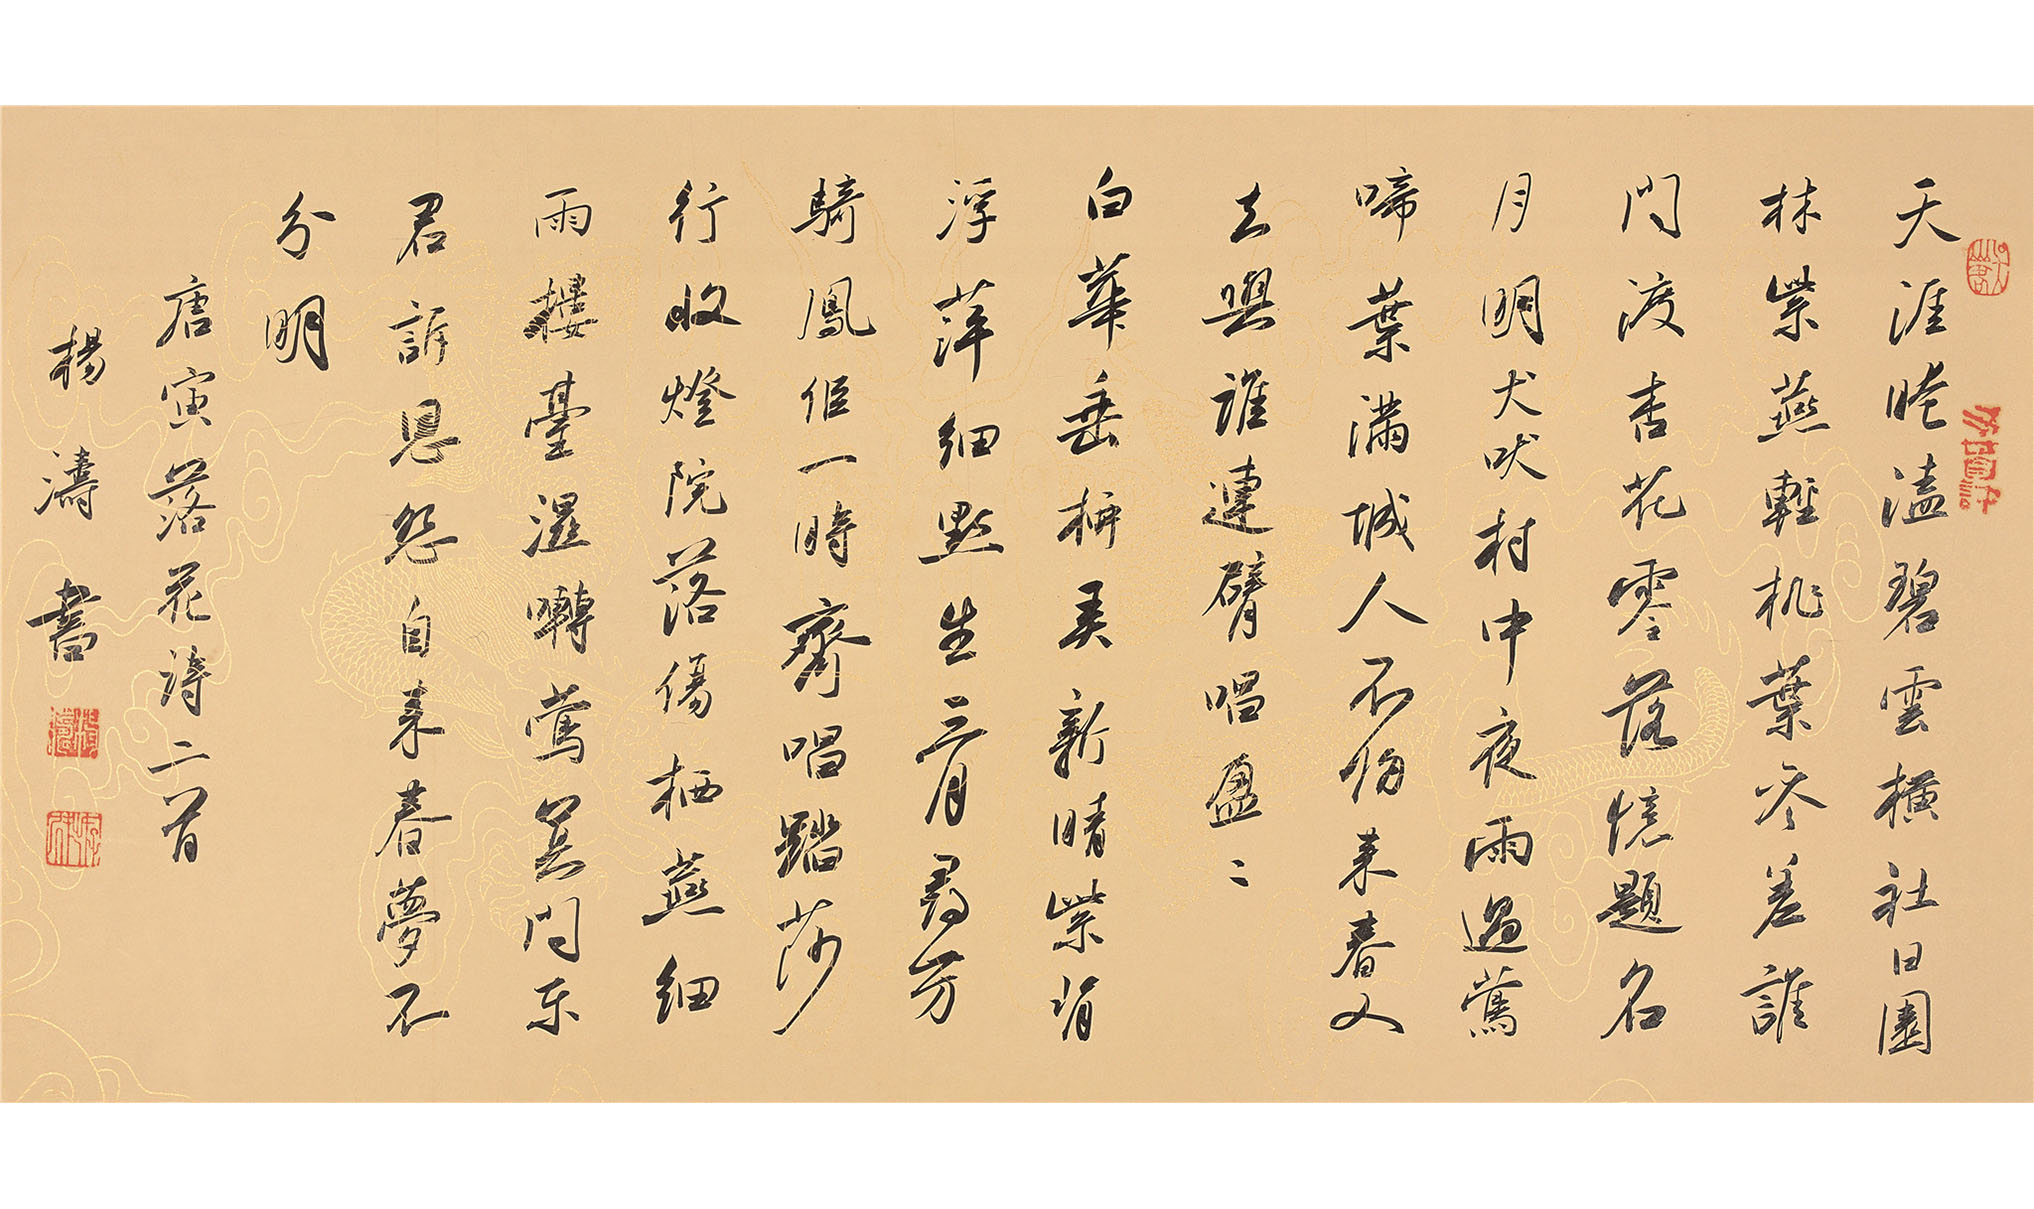 天涯晻溘碧雲橫社日園
林紫燕輕桃葉參差誰
問渡杏花零落憶題名
月明犬吠村中夜雨過鶯
啼葉滿城人不歸來春又
去與誰連臂唱盈〻
白華垂柳弄新晴紫背
浮萍細點生三月尋芳
騎鳳侶一時齊唱踏莎
行收燈院落傷栖燕細
雨樓臺濕囀鶯莫問東
君訴恩怨自來春夢不
分明
唐寅落花詩二首
楊濤書